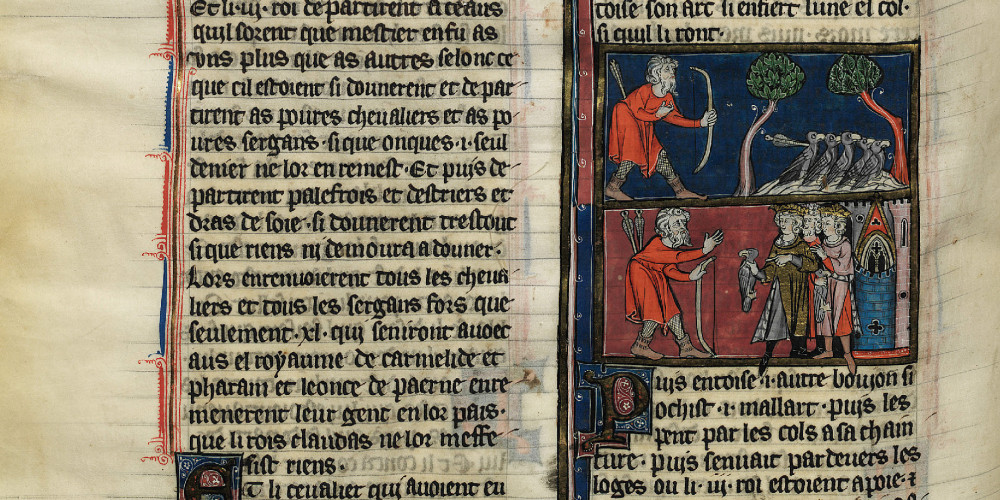 Et li .iii. roi departirent a ceaus
quil sorent que mestier en fu as
vns plus que as autres selonc ce
que cil estoient si dounerent et depar
tirent as poures cheualiers et as po
ures sergans. si que onques .i. seul
denier ne lor en remest. Et puis de
partirent palefrois et destriers et
dras de soie. si dounerent trestout
si que riens ni demoura a douner.
Lors enrenuoierent tous les cheua
liers et tous les sergans fors que
seulement .xl. qui seruiront auoec
aus el royaume de carmelide et
pharam et leonce de paerne enre
menerent leur gent en lor pais.
que li rois claudas ne lor meffe
sist riens.
Et li ceualier qui auoient eu
toise son arc si enfiert lune el col.
si quil li ront.
Puis entoise .i. autre boujon si
ochist .i. mallart. puis les
pent par les cols a sa cham
ture. puis senuait par deuers les
loges ou li .iii. roi estoient apoie. z